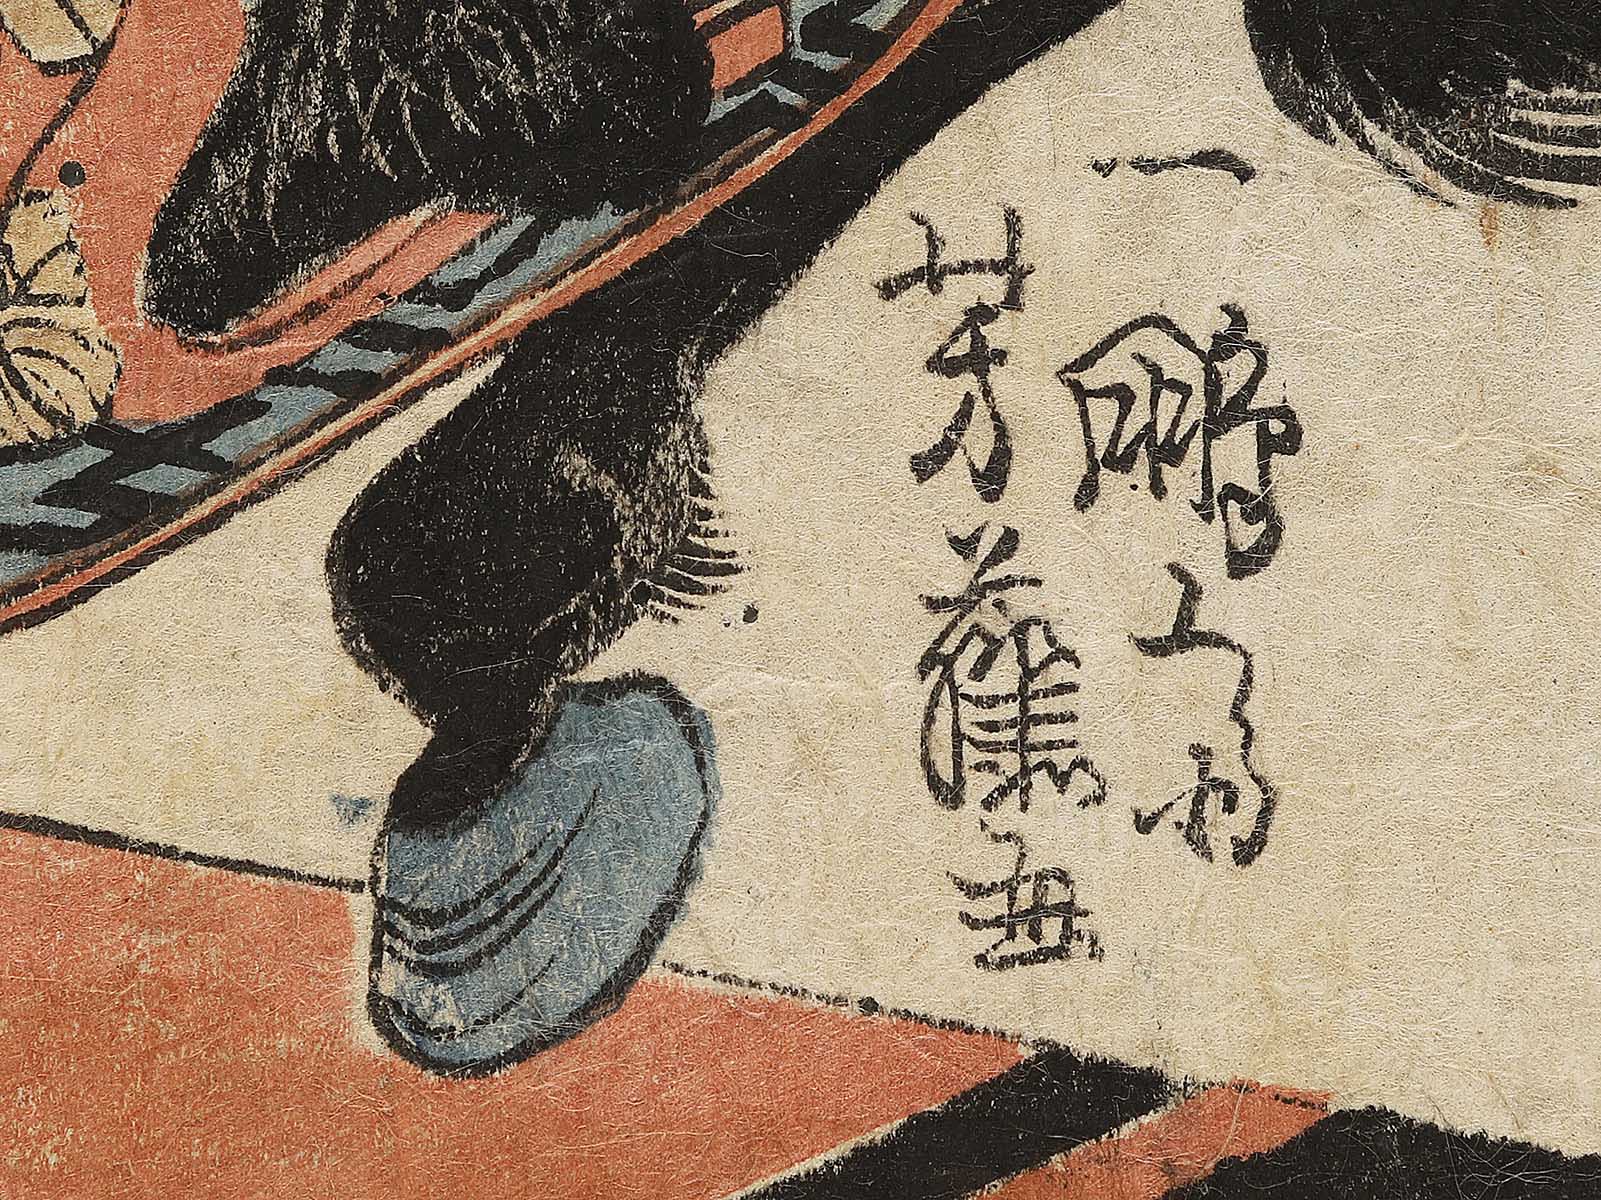 一鵬斎
芳藤画